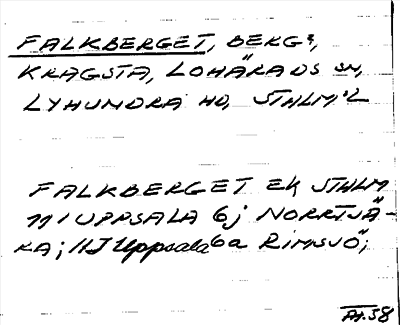 FALKBERGET, BERG,
KRAGSTA, LOHÄRADS SN,
LYHUNDRA HD, STHLM'L
FALKBERGET EK STHLM
11I UPPSALA 6j NORRTJÄ-
KA; 11J Uppsala 6a RIMSJÖ;